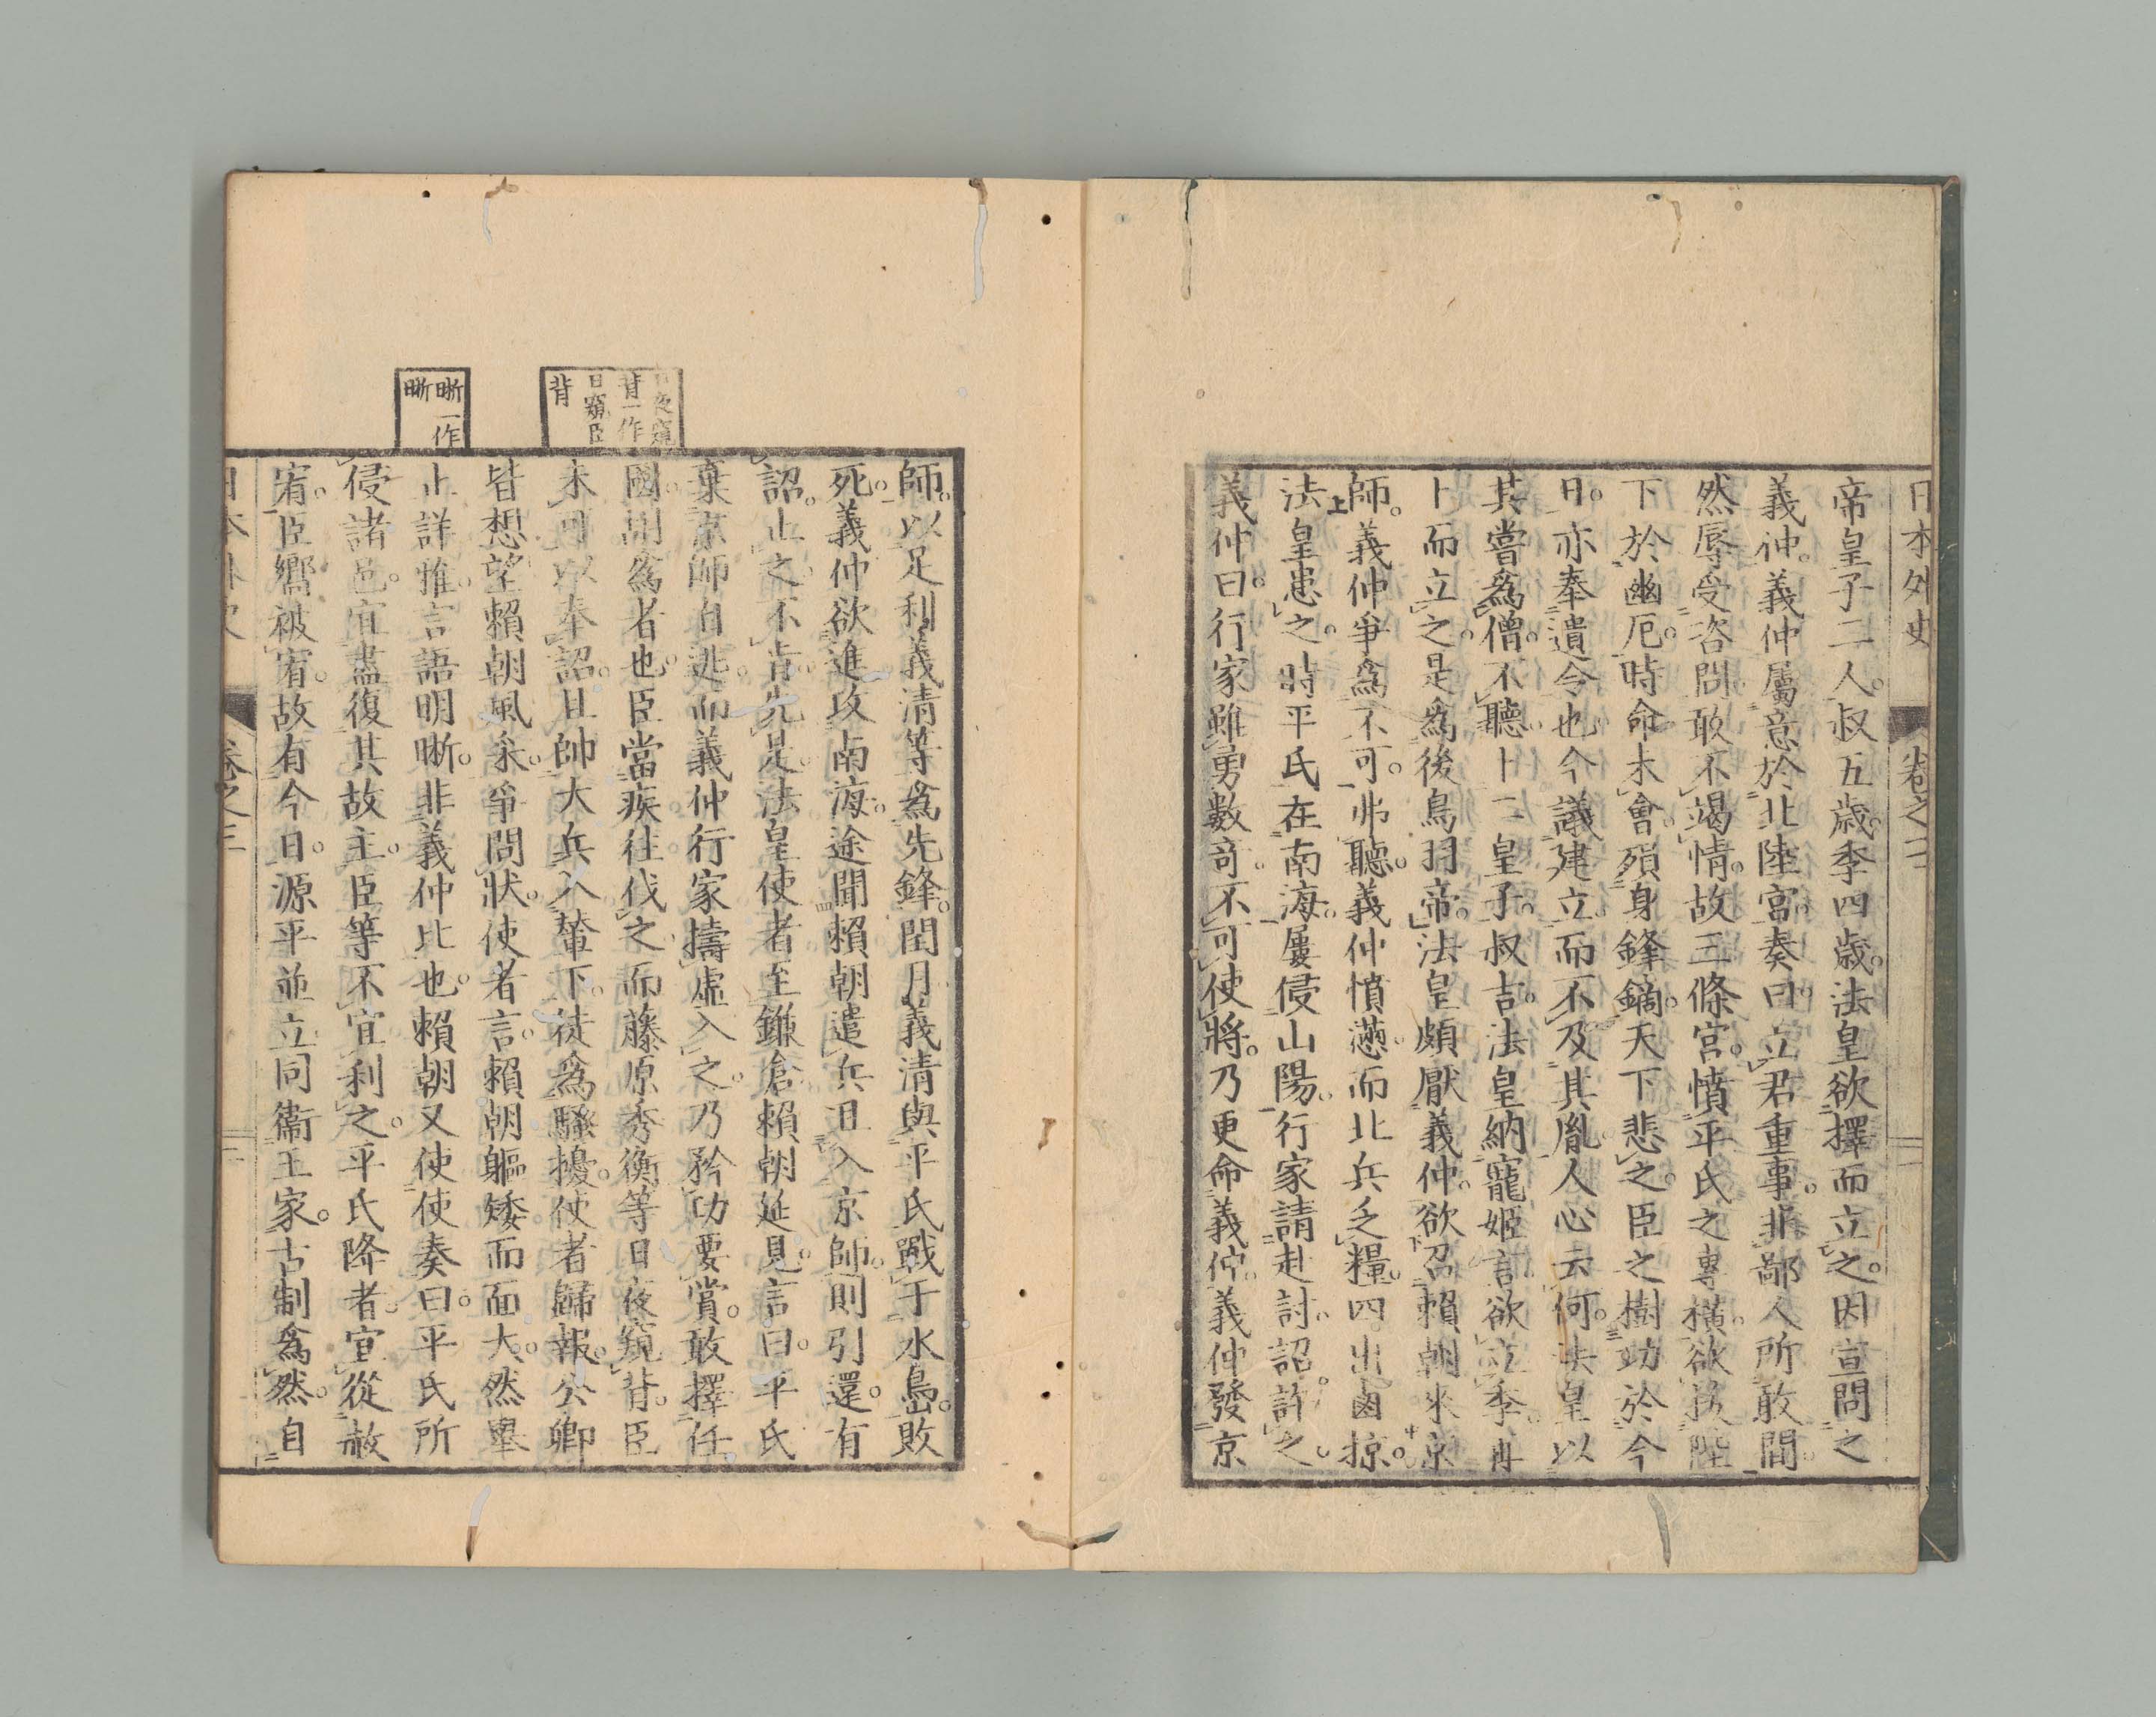 日本外史 卷之三
帝皇子二人。叔五歳。季四歳。法皇欲擇而立之。因宣問之
義仲。義仲屬意於北陸宮。奏曰。立君重事。非鄙人所敢間。
然辱受咨問。敢不竭情。故三條宮。憤平氏之專横。欲拔陛
下於幽厄。時命未會。殞身鋒鏑。天下悲之。臣之樹功於今
日。亦奉遺令也。今議建立。而不及其胤。人心云何。法皇以
其嘗爲僧。不聽。卜二皇子。叔吉。法皇納寵姬言。欲立季。再
卜而立之。是爲後鳥羽帝。法皇頗厭義仲。欲召賴朝來京
師。義仲爭爲不可。弗聽。義仲憤懣。而北兵乏糧。四出鹵掠。
法皇患之。時平氏在南海。屢侵山陽。行家請赴討。詔許之。
義仲曰。行家雖勇數奇。不可使將。乃更命義仲。義仲發京
師。以足利義清等爲先鋒。閏月義清與平氏戰于水島。敗
死。義仲欲進攻南海。途聞賴朝遣兵且入京師。則引還。有
詔止之。不肯。先是。法皇使者至鎌倉。賴朝延見。言曰。平氏
棄京師自逃。而義仲行家擣虛入之。乃矜功要賞。敢擇任
國。則爲者也。臣當疾往伐之。而藤原秀衡等日夜窺背。臣
未可以奉詔。且帥大兵入輦下。徒爲騷擾。使者歸報。公卿
皆想望賴朝風采。爭問狀。使者言。賴朝軀矮而面大。然擧
止詳雅。言語明晰。非義仲比也。賴朝又使使奏曰。平氏所
侵諸邑。宜盡復其故主。臣等不宜利之。平氏降者。宜從赦
宥。臣嚮被宥。故有今日。源平並立。同衞王家。古制爲然。自
日夜窺
背一作
日窺臣
背
晰一作
晣
卷之三